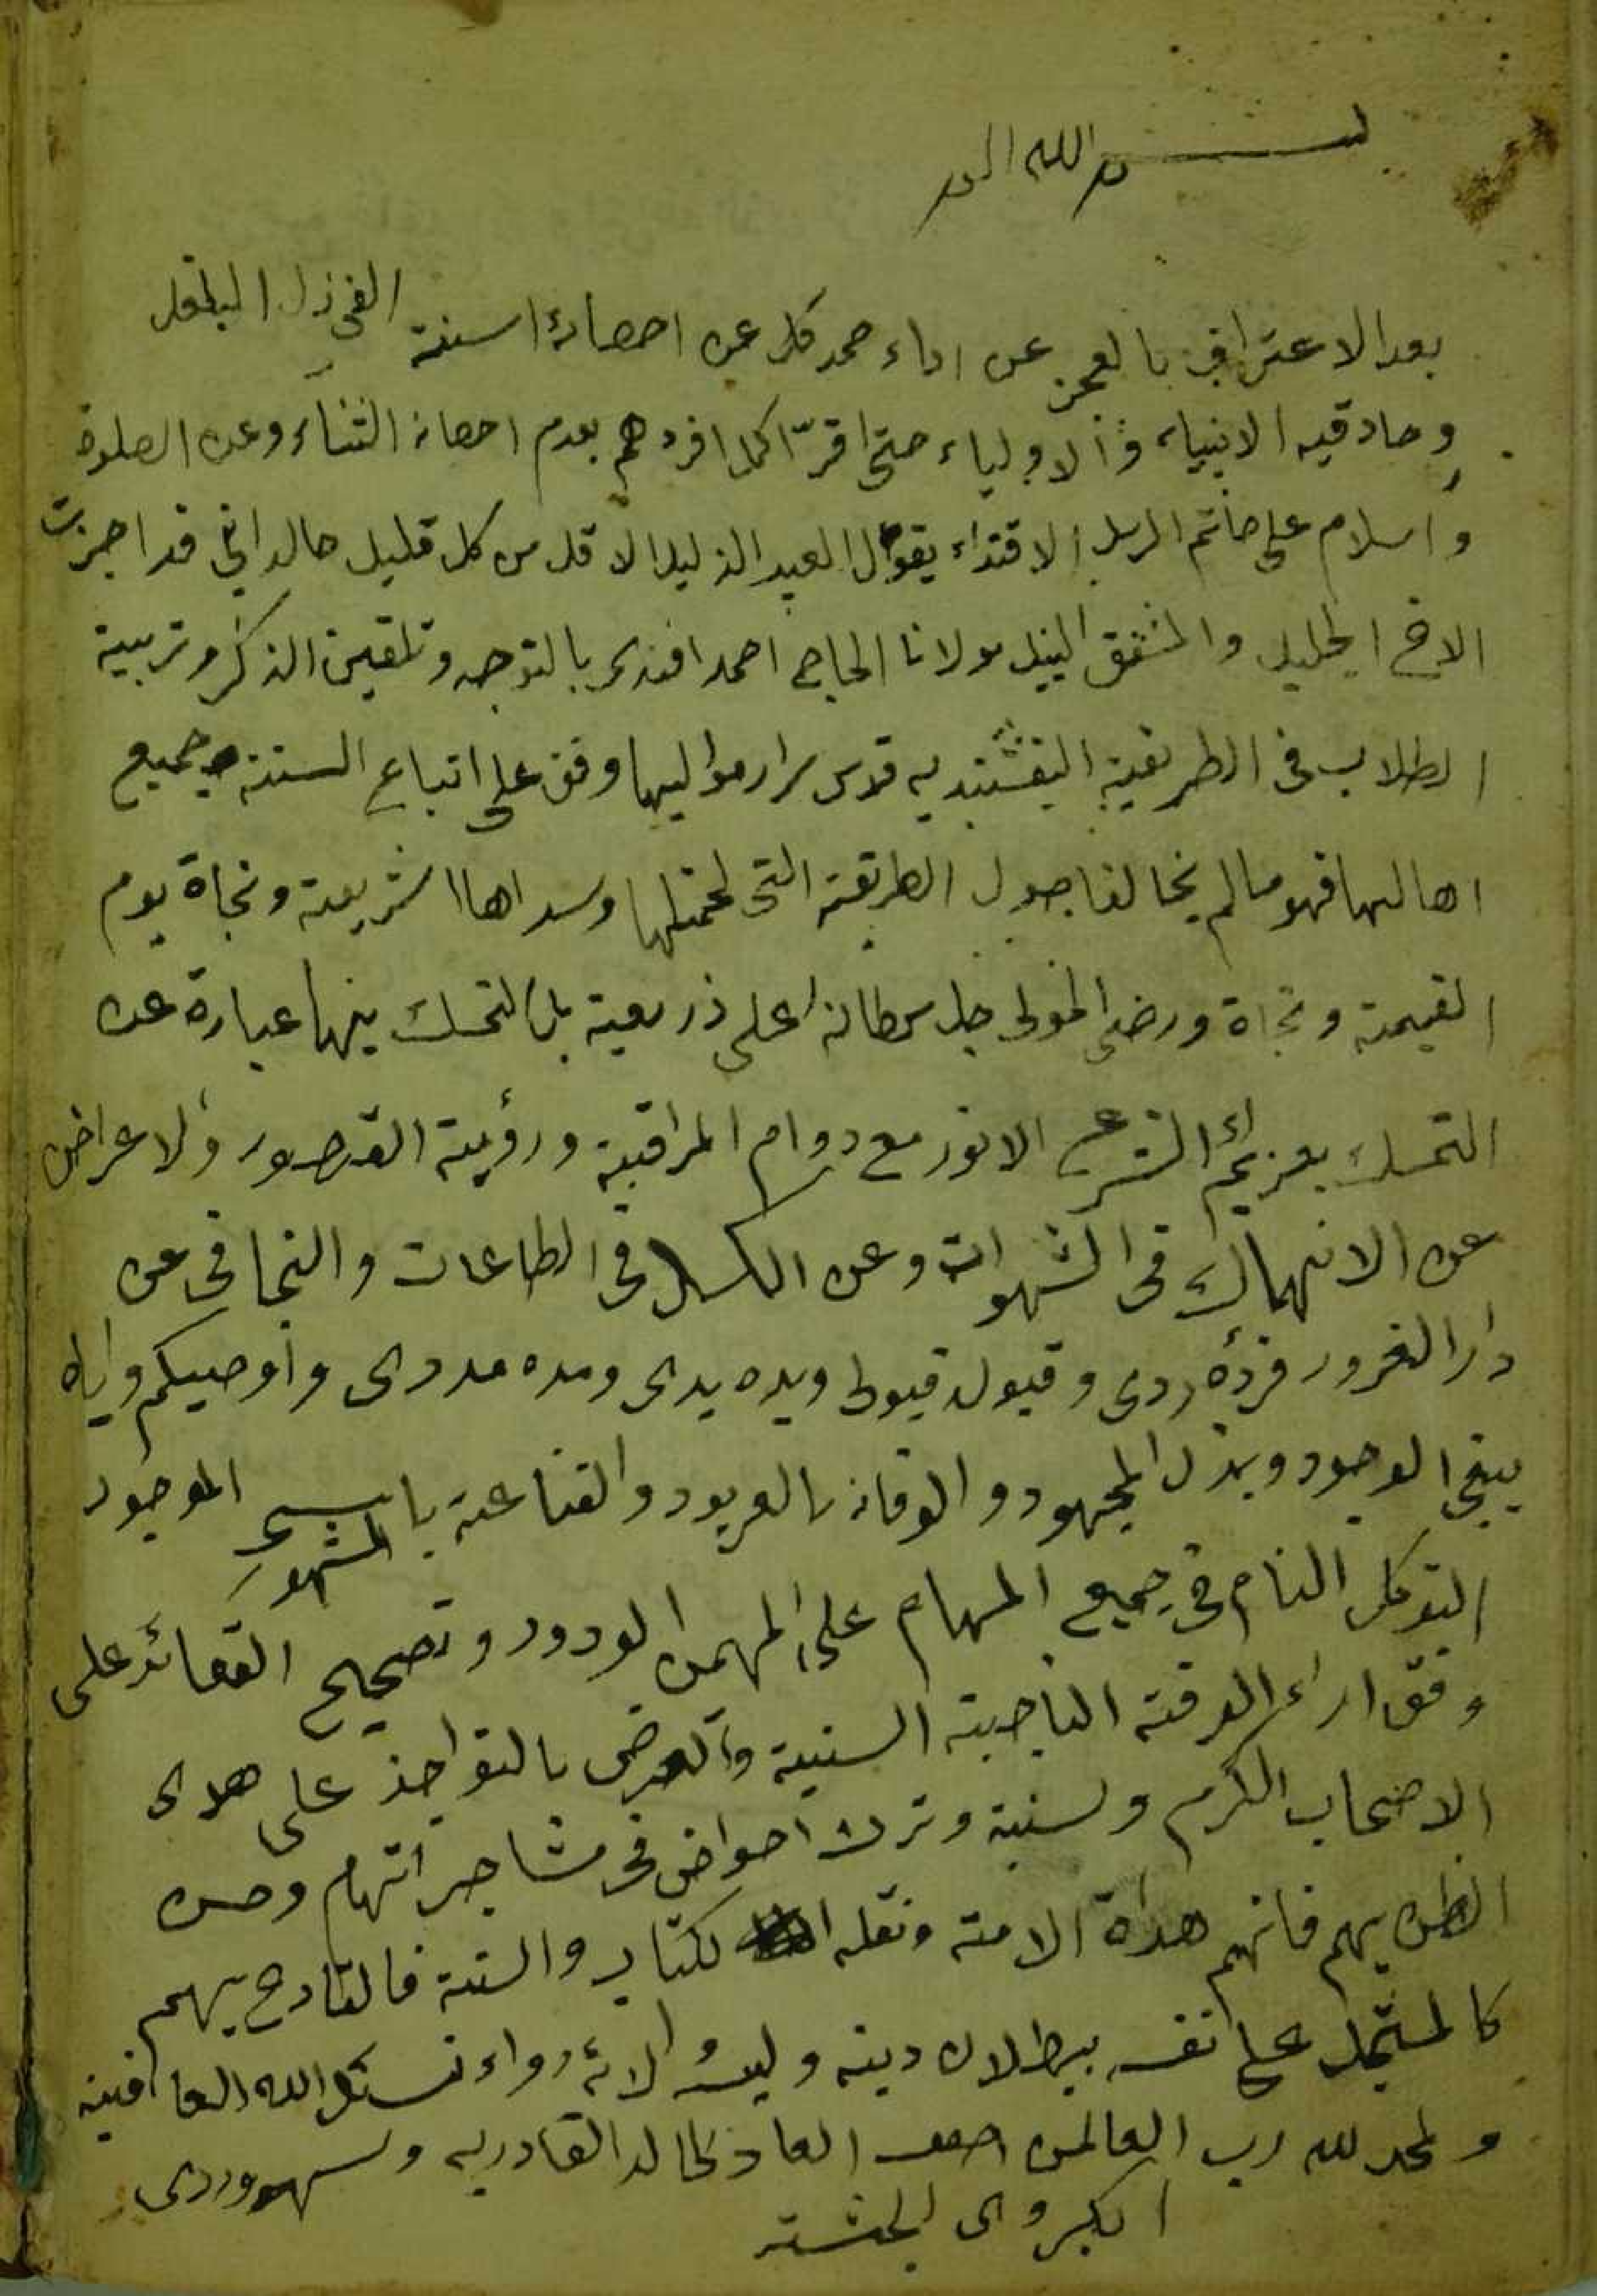 بسم الله الر
بعد الاعتراف بالعجز عن اداء حمد كل عن احصائه السنة
وحادقيه الانبياء والاولياء حتى اقرّ اكمل افردهم بعدم احصاء الثناء وعن الصلوة
واسلام على خاتم الرسل الاقتداء يقول العبد الذليل الاقل من كل قليل خالد اني قد اجزت
الاخ الجليل والمشفق النبيل مولانا الحاج احمد افندى بالتوجه وتلقين الذكر وتربية
الطلاب فى الطريقية النقشبنديه قدس اسرار مواليها وفق على اتباع السنة جميع
اهاليها فهو مالم يخالف اصول الطريقة التى لحمتها وسداها الشريعة ونجاة يوم
القيمة ونجاة ورضى المولى جل سطانه اعلى ذريعية بل التمسك بها عبارة عن
التمسك بعزيم الشرع الانور مع دوام المراقبة ورؤية القصور ولاعراض
عن الانهماك فى الشهوات وعن الكسل فى الطاعات والتجافى عن
دار الغرور فردّه ردى وقبوله قبولى ويده يدى ومده مددى واوصيكم واياه
ببغى الوجود وبذل المجهود والوفاء بالعهود والقناعة باسم المشهور الموجود
التوكل التام فى جميع المهام على المهمن الودود وتصحيح العقائد على
وفق اراء الفرقة الناجية السنية والعض بالنواجذ على هدى
الاصحاب الكرم ولسنة وترك اخواض فى مشاجراتهم وحسن
الظن بهم فانهم هداة الامة ونقله لكتاب والسنة فالقادح بهم
كالمسجل على نفسه ببطلان دينه وليس لدائه دواء نسئل الله العافية
ولحمد لله رب العالمن اضعف العباد خالد القادريه ولسهروردى
الكبروى الجشتـ